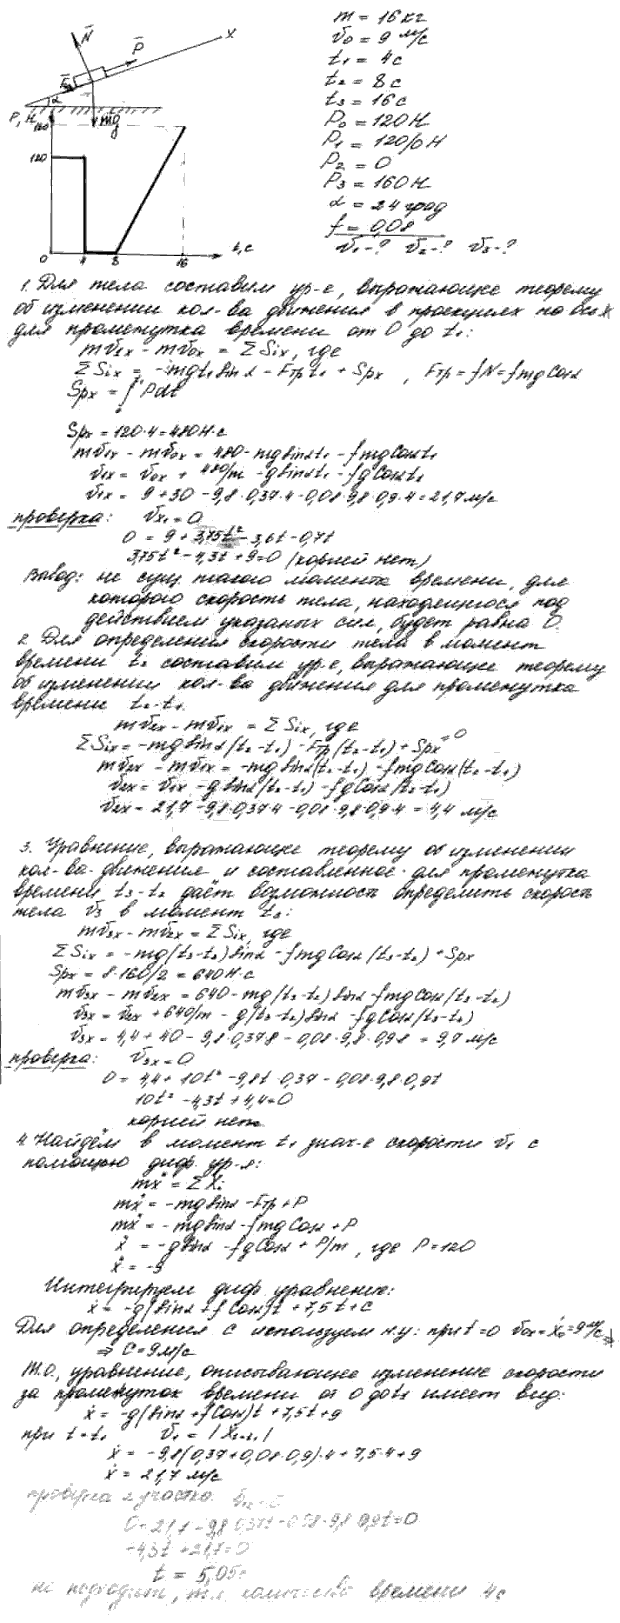 N̄ P̄ x
Fтр α
P, H mg
m = 16 кг
v0 = 9 м/с
t1 = 4 с
t2 = 8 с
t3 = 16 с
P0 = 120 H
P1 = 120/0 H
P2 = 0
P3 = 160 H
α = 24 град
f = 0,08
v1-? v2-? v3-?
160
120
0 4 8 16 t, c
1. Для тела составим ур-е, выражающее теорему
об изменении кол-ва движения в проекциях на ось X
для промежутка времени от 0 до t1:
mv1x - mv0x = ΣSix, где
ΣSix = -mgt1 sinα - Fтр t1 + Spx , Fтр = fN = fmg Cosα
Spx = ∫Pdt
Spx = 120·4 = 480 H·c
mv1x - mv0x = 480 - mg sinα t1 - fmg Cosα t1
v1x = v0x + 480/m - g sinα t1 - fg Cosα t1
v1x = 9 + 30 - 9,8·0,37·4 - 0,08·9,8·0,9·4 = 21,7 м/с
проверка: vx1 = 0
0 = 9 + 3,75t² - 3,6t - 0,7t
3,75t² - 4,3t + 9 = 0 (корней нет)
Вывод: не сущ. такого момента времени, для
которого скорость тела, находящегося под
действием указаных сил, будет равна 0.
2. Для определения скорости тела в момент
времени t2 составим ур-е, выражающее теорему
об изменении кол-ва движения для промежутка
времени t2-t1.
mv2x - mv1x = ΣSix, где
ΣSix = -mg sinα (t2-t1) - Fтр (t2-t1) + Spx = 0
mv2x - mv1x = -mg sinα (t2-t1) - fmg Cosα (t2-t1)
v2x = v1x - g sinα (t2-t1) - fg Cosα (t2-t1)
v2x = 21,7 - 9,8·0,37·4 - 0,08·9,8·0,9·4 = 4,4 м/с
3. Уравнение, выражающее теорему об изменении
кол-ва движения и составленное для промежутка
времени t3-t2 даёт возможность определить скорость
тела v3 в момент t3:
mv3x - mv2x = ΣSix, где
ΣSix = -mg (t3-t2) sinα - fmg Cosα (t3-t2) + Spx
Spx = 8·160/2 = 640 H·c
mv3x - mv2x = 640 - mg (t3-t2) sinα - fmg Cosα (t3-t2)
v3x = v2x + 640/m - g (t3-t2) sinα - fg Cosα (t3-t2)
v3x = 4,4 + 40 - 9,8·0,37·8 - 0,08·9,8·0,9·8 = 9,7 м/с
проверка: v3x = 0
0 = 4,4 + 10t² - 9,8t·0,37 - 0,08·9,8·0,9t
10t² - 4,3t + 4,4 = 0
корней нет
4. Найдём в момент t1 знач-е скорости v1 с
помощью диф. ур-я:
mẍ = ΣXi
mẍ = -mg sinα - Fтр + P
mẍ = -mg sinα - fmg Cosα + P
ẍ = -g sinα - fg Cosα + P/m , где P = 120
ẍ = -g
Интегрируем диф уравнение:
ẋ = -g (sinα + f Cosα) t + 7,5t + C
Для определения C используем н.у: при t = 0 v0x = ẋ0 = 9 м/с ⇒
⇒ C = 9 м/с
Т.О., уравнение, описывающее изменение скорости
за промежуток времени от 0 до t1 имеет вид:
ẋ = -g (sinα + f Cosα) t + 7,5t + 9
при t = t1 v1 = |ẋt=t1|
ẋ = -9,8 (0,37 + 0,08·0,9)·4 + 7,5·4 + 9
ẋ = 21,7 м/с
проверка 2 участка
0 = 21,7 - 9,8·0,37t - 0,08·9,8·0,9t = 0
-4,3t + 21,7 = 0
t = 5,05c
не подходит, т.к. количество времени 4с